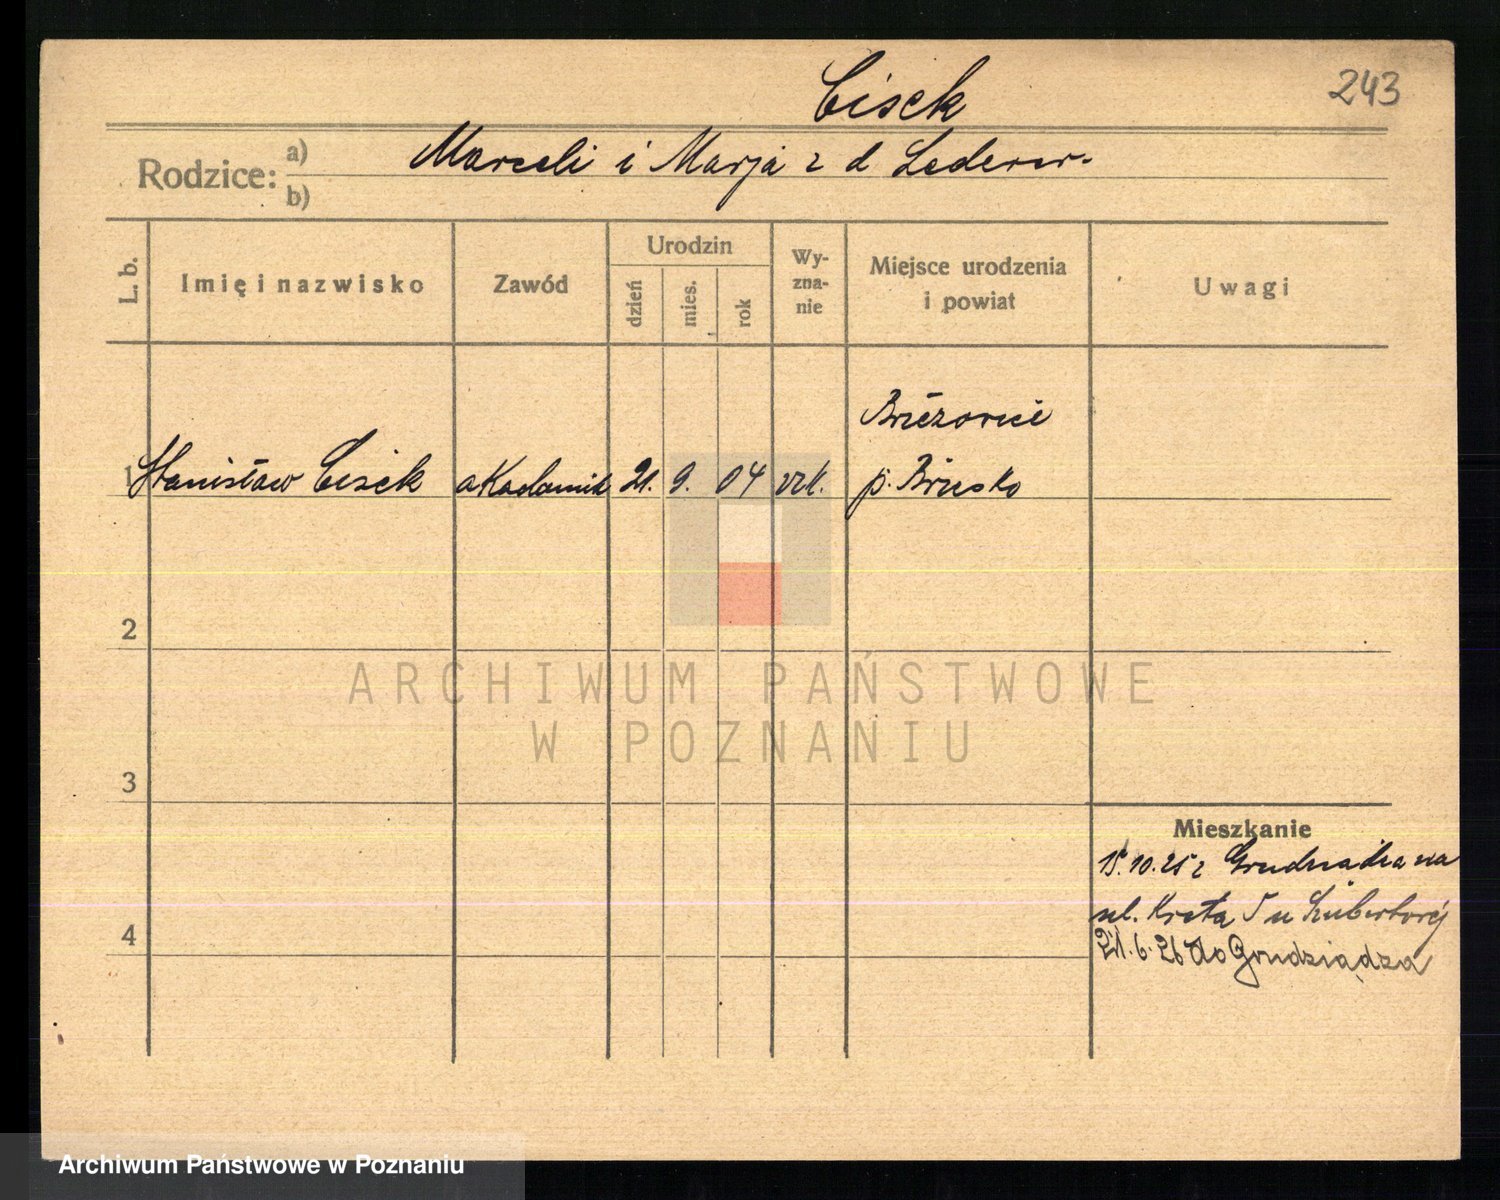 Cisek
243
Rodzice: a) Marceli i Marja z d Lederer.
b)
L. b.
Imię i nazwisko
Zawód
Urodzin
dzień
mies.
rok
Wy-
zna-
nie
Miejsce urodzenia
i powiat
Uwagi
Brzezowice
1 Stanisław Cisek akademik 21. 9. 04 rzk. p. Brzesko
2
ARCHIWUM PAŃSTWOWE
W POZNANIU
3
Mieszkanie
15.10.25 z Grudziądza na
ul. Kręta 5 u
4
21.6.26 do Grudziądza
Archiwum Państwowe w Poznaniu